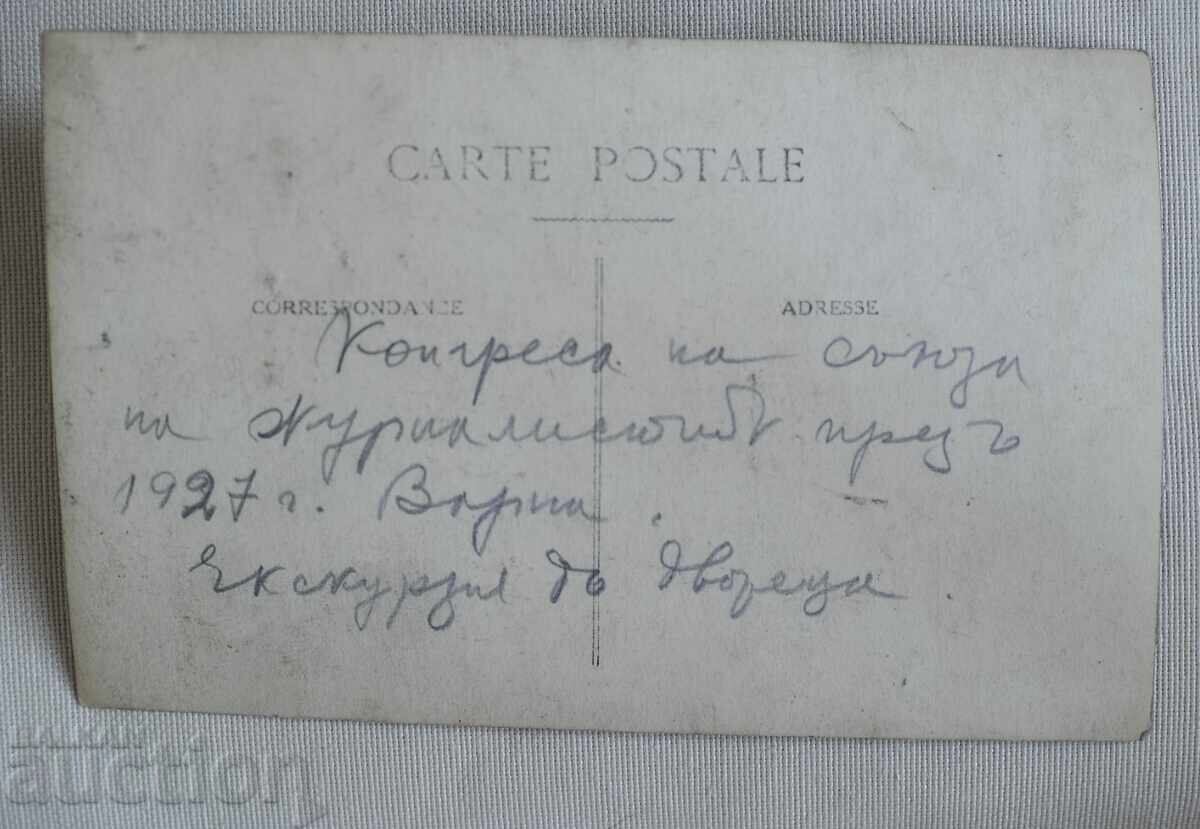 CARTE POSTALE
CORRESPONDANCE
ADRESSE
Конгреса на съюза
на журналиститѣ презъ
1927 г. Варна.
Екскурзия до двореца.
BALKAN
auction